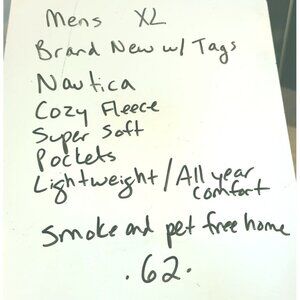 Mens XL
Brand New w/ Tags
Nautica
Cozy Fleece
Super Soft
Pockets
Lightweight / All year
comfort
Smoke and pet free home
.62.